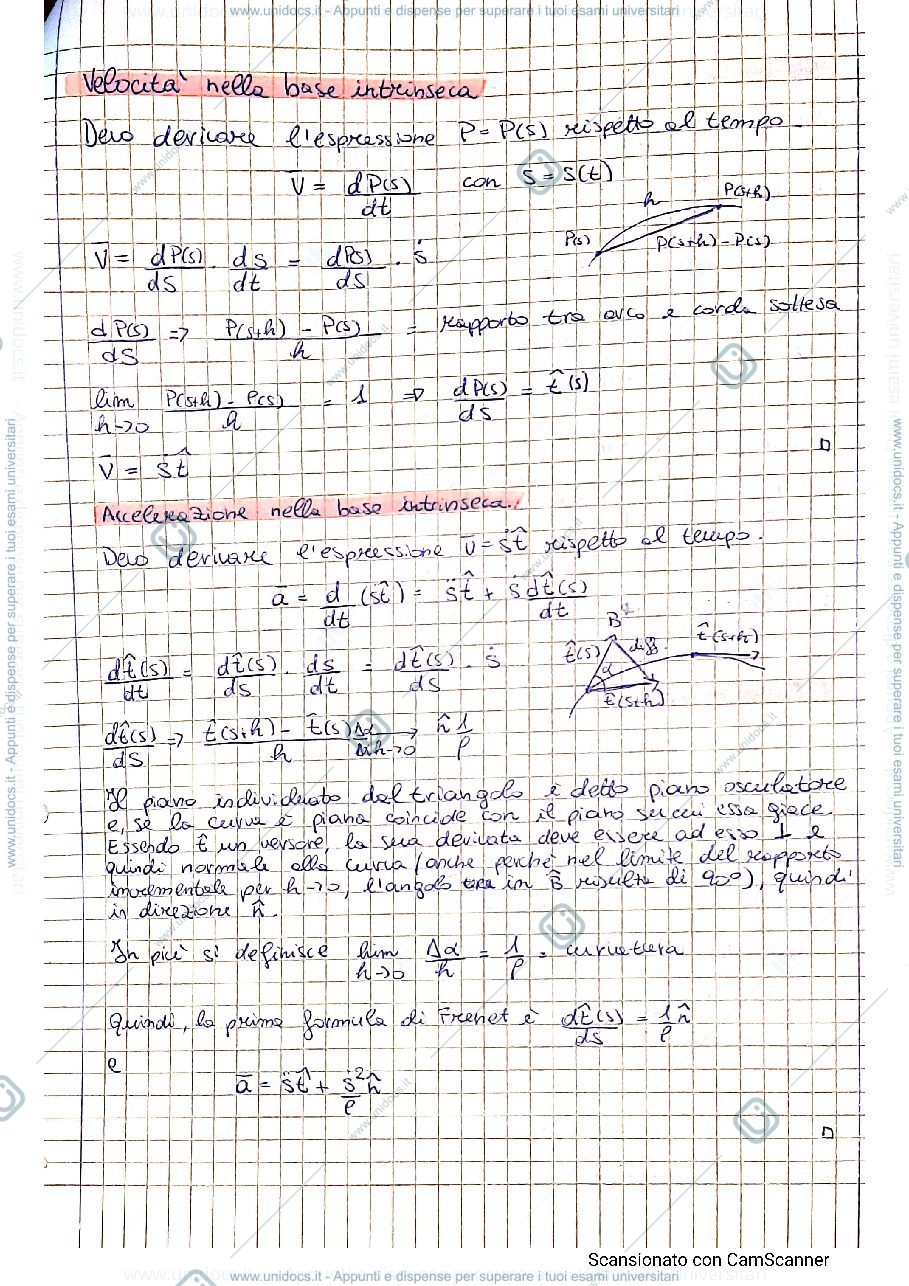 www.unidocs.it - Appunti e dispense per superare i tuoi esami universitari
Velocità nella base intrinseca
Devo derivare l'espressione P = P(s) rispetto al tempo.
V̄ = dP(s)/dt con s = s(t)
P(s) h P(s+h) P(s+h) - P(s)
V̄ = dP(s)/ds · ds/dt = dP(s)/ds · ṡ
dP(s)/ds => P(s+h) - P(s)/h = rapporto tra arco e corda sottesa
lim h→0 P(s+h) - P(s)/h = 1 => dP(s)/ds = t̂(s)
V̄ = ṡt̂
Accelerazione nella base intrinseca.
Devo derivare l'espressione v̄ = ṡt̂ rispetto al tempo.
ā = d/dt (ṡt̂) = s̈t̂ + ṡ dt̂(s)/dt
B̂ t̂(s) diff α t̂(s+h) t̂(s+h)
dt̂(s)/dt = dt̂(s)/ds · ds/dt = dt̂(s)/ds · ṡ
dt̂(s)/ds => t̂(s+h) - t̂(s)/h Δα h→0 → n̂ 1/ρ
Il piano individuato dal triangolo è detto piano osculatore
e, se la curva è piana coincide con il piano su cui essa giace.
Essendo t̂ un versore, la sua derivata deve essere ad esso ⊥ e
quindi normale alla curva (anche perché nel limite del rapporto
incrementale per h→0, l'angolo in B̂ risulta di 90°), quindi
in direzione n̂.
In più si definisce lim h→0 Δα/h = 1/ρ = curvatura
Quindi, la prima formula di Frenet è dt̂(s)/ds = 1/ρ n̂
e
ā = s̈t̂ + ṡ²/ρ n̂
Scansionato con CamScanner
www.unidocs.it - Appunti e dispense per superare i tuoi esami universitari